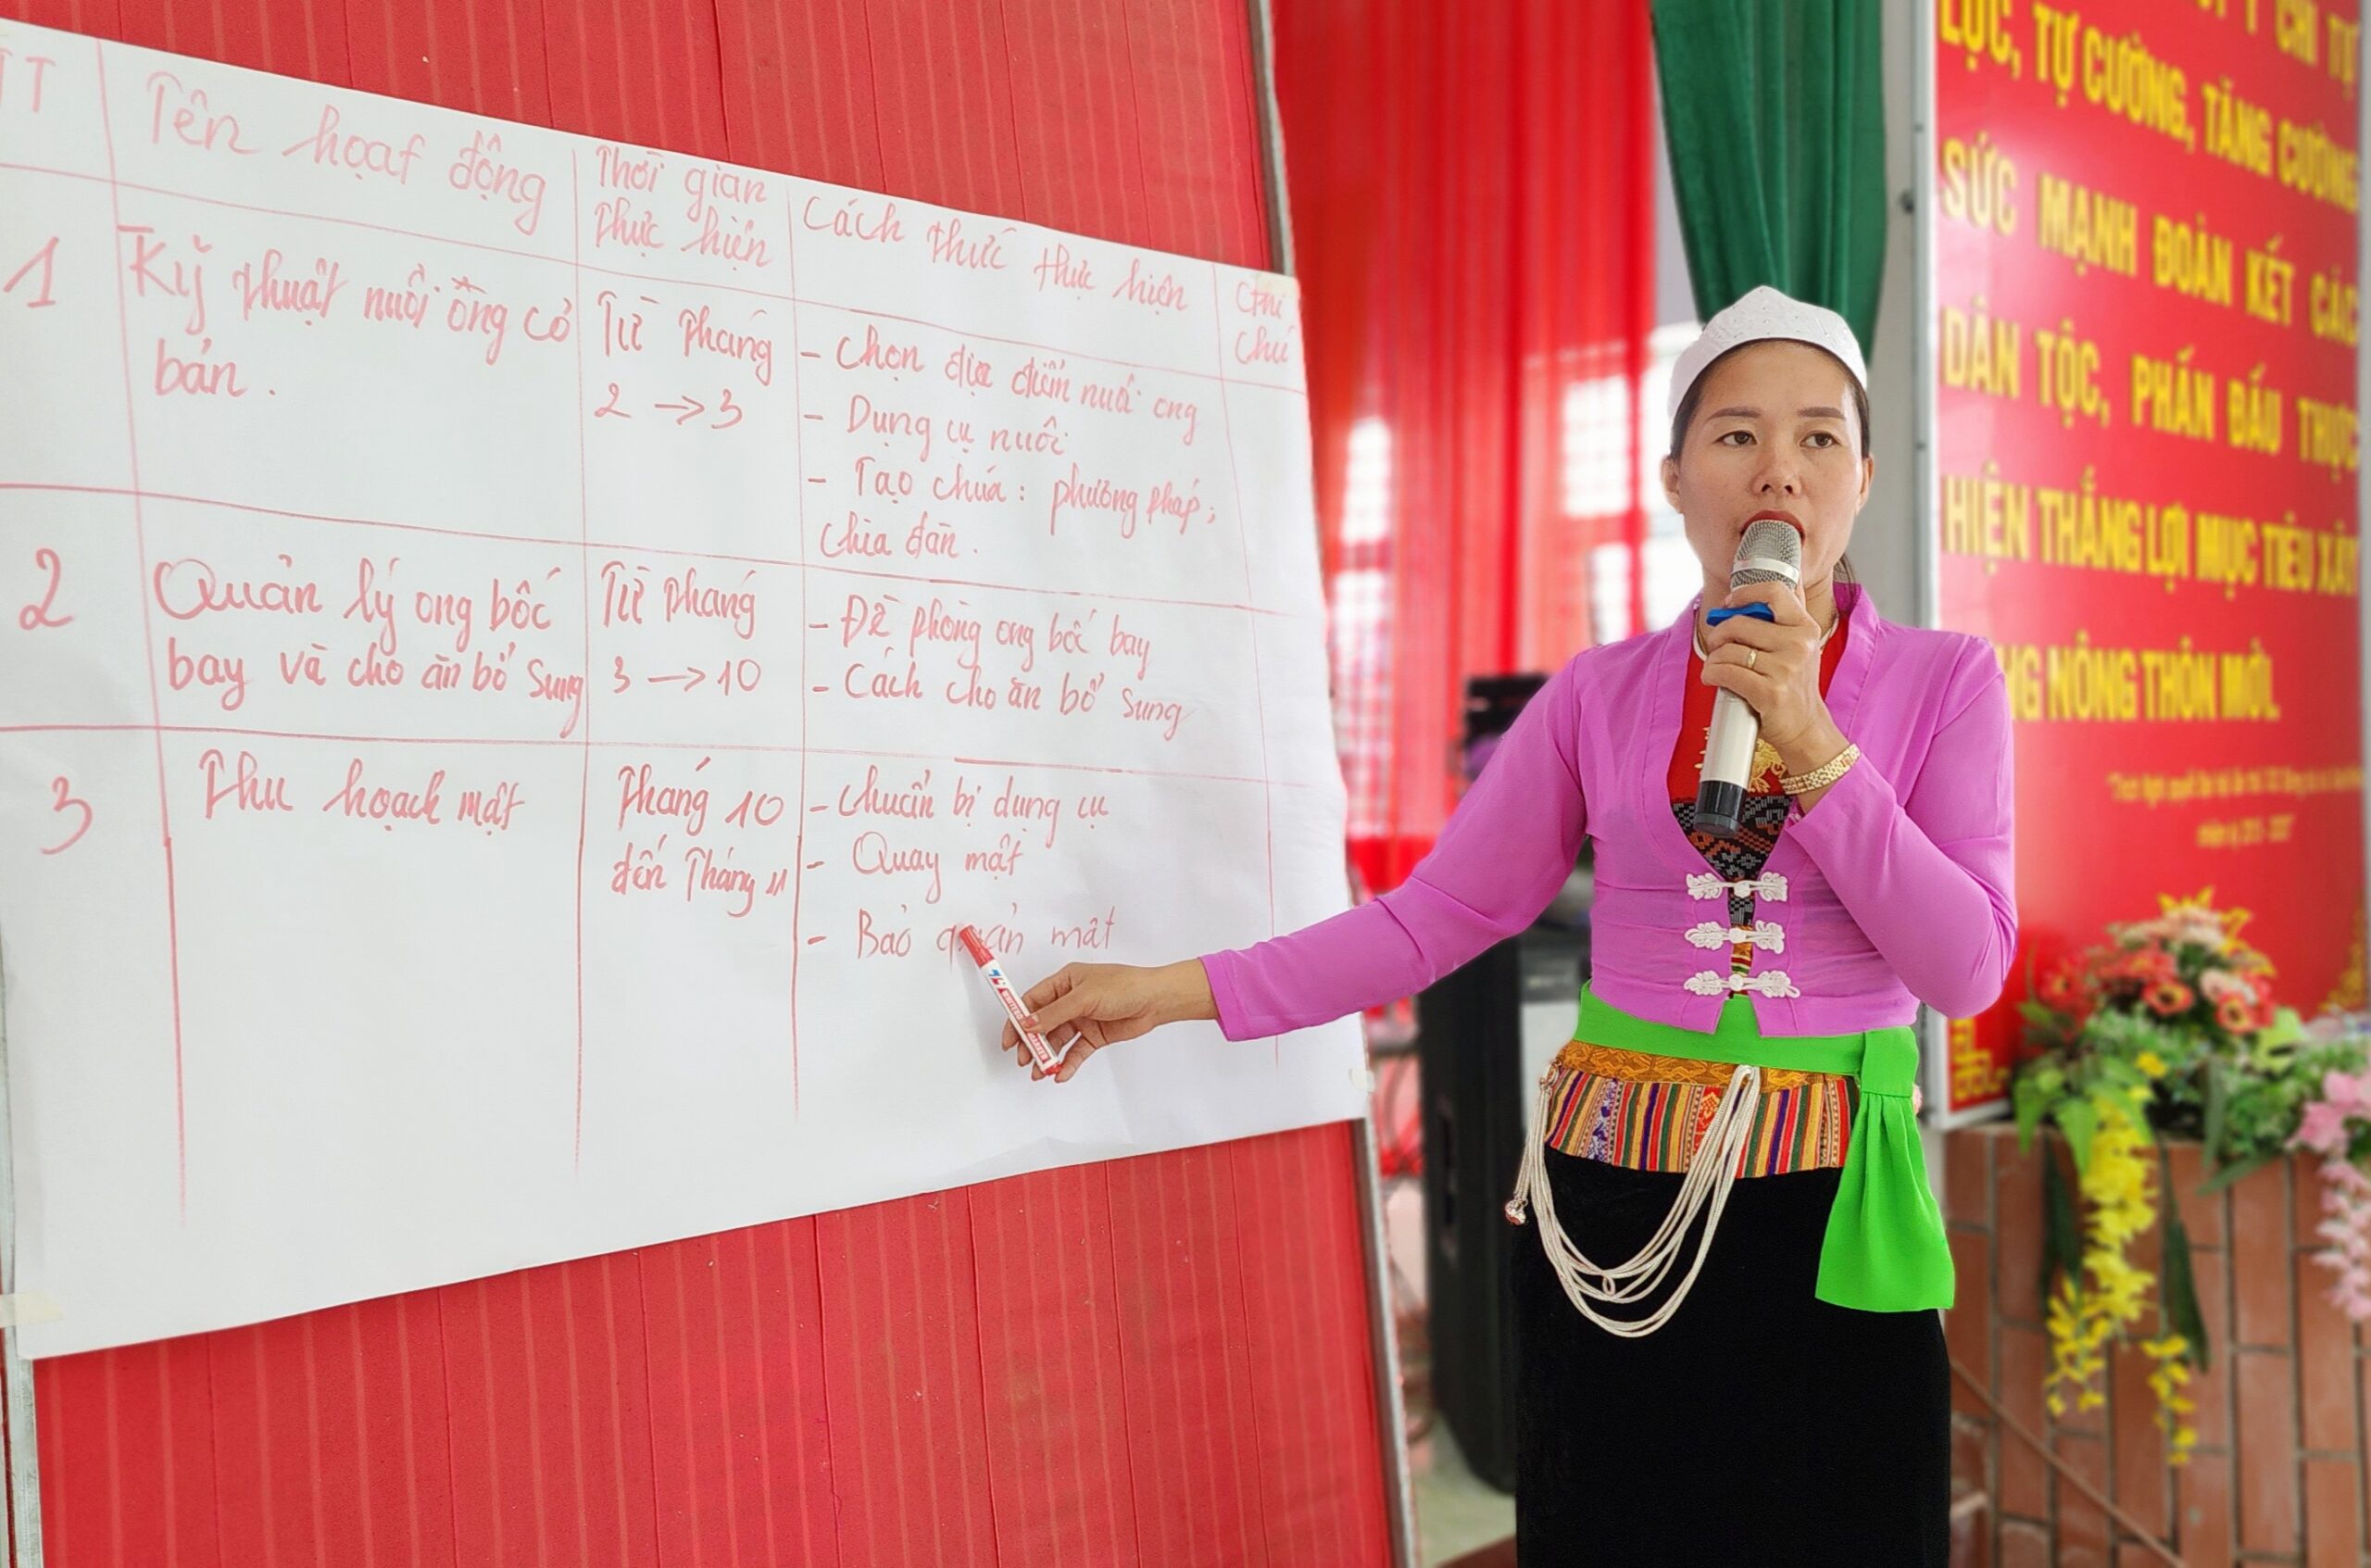 TT
Tên hoạt động
Thời gian
thực hiện
Cách thức thực hiện
Ghi
chú
1
Kỹ thuật nuôi ong cơ
bản.
Từ tháng
2 → 3
- Chọn địa điểm nuôi ong
- Dụng cụ nuôi
- Tạo chúa: phương pháp;
chia đàn.
2
Quản lý ong bốc
bay và cho ăn bổ sung
Từ tháng
3 → 10
- Đề phòng ong bốc bay
- Cách cho ăn bổ sung
3
Thu hoạch mật
Tháng 10
đến Tháng 11
- Chuẩn bị dụng cụ
- Quay mật
- Bảo quản mật
Ý CHÍ TỰ
LỰC, TỰ CƯỜNG, TĂNG CƯỜNG
SỨC MẠNH ĐOÀN KẾT CÁC
DÂN TỘC, PHẤN ĐẤU THỰC
HIỆN THẮNG LỢI MỤC TIÊU XÂY
NG NÔNG THÔN MỚI.